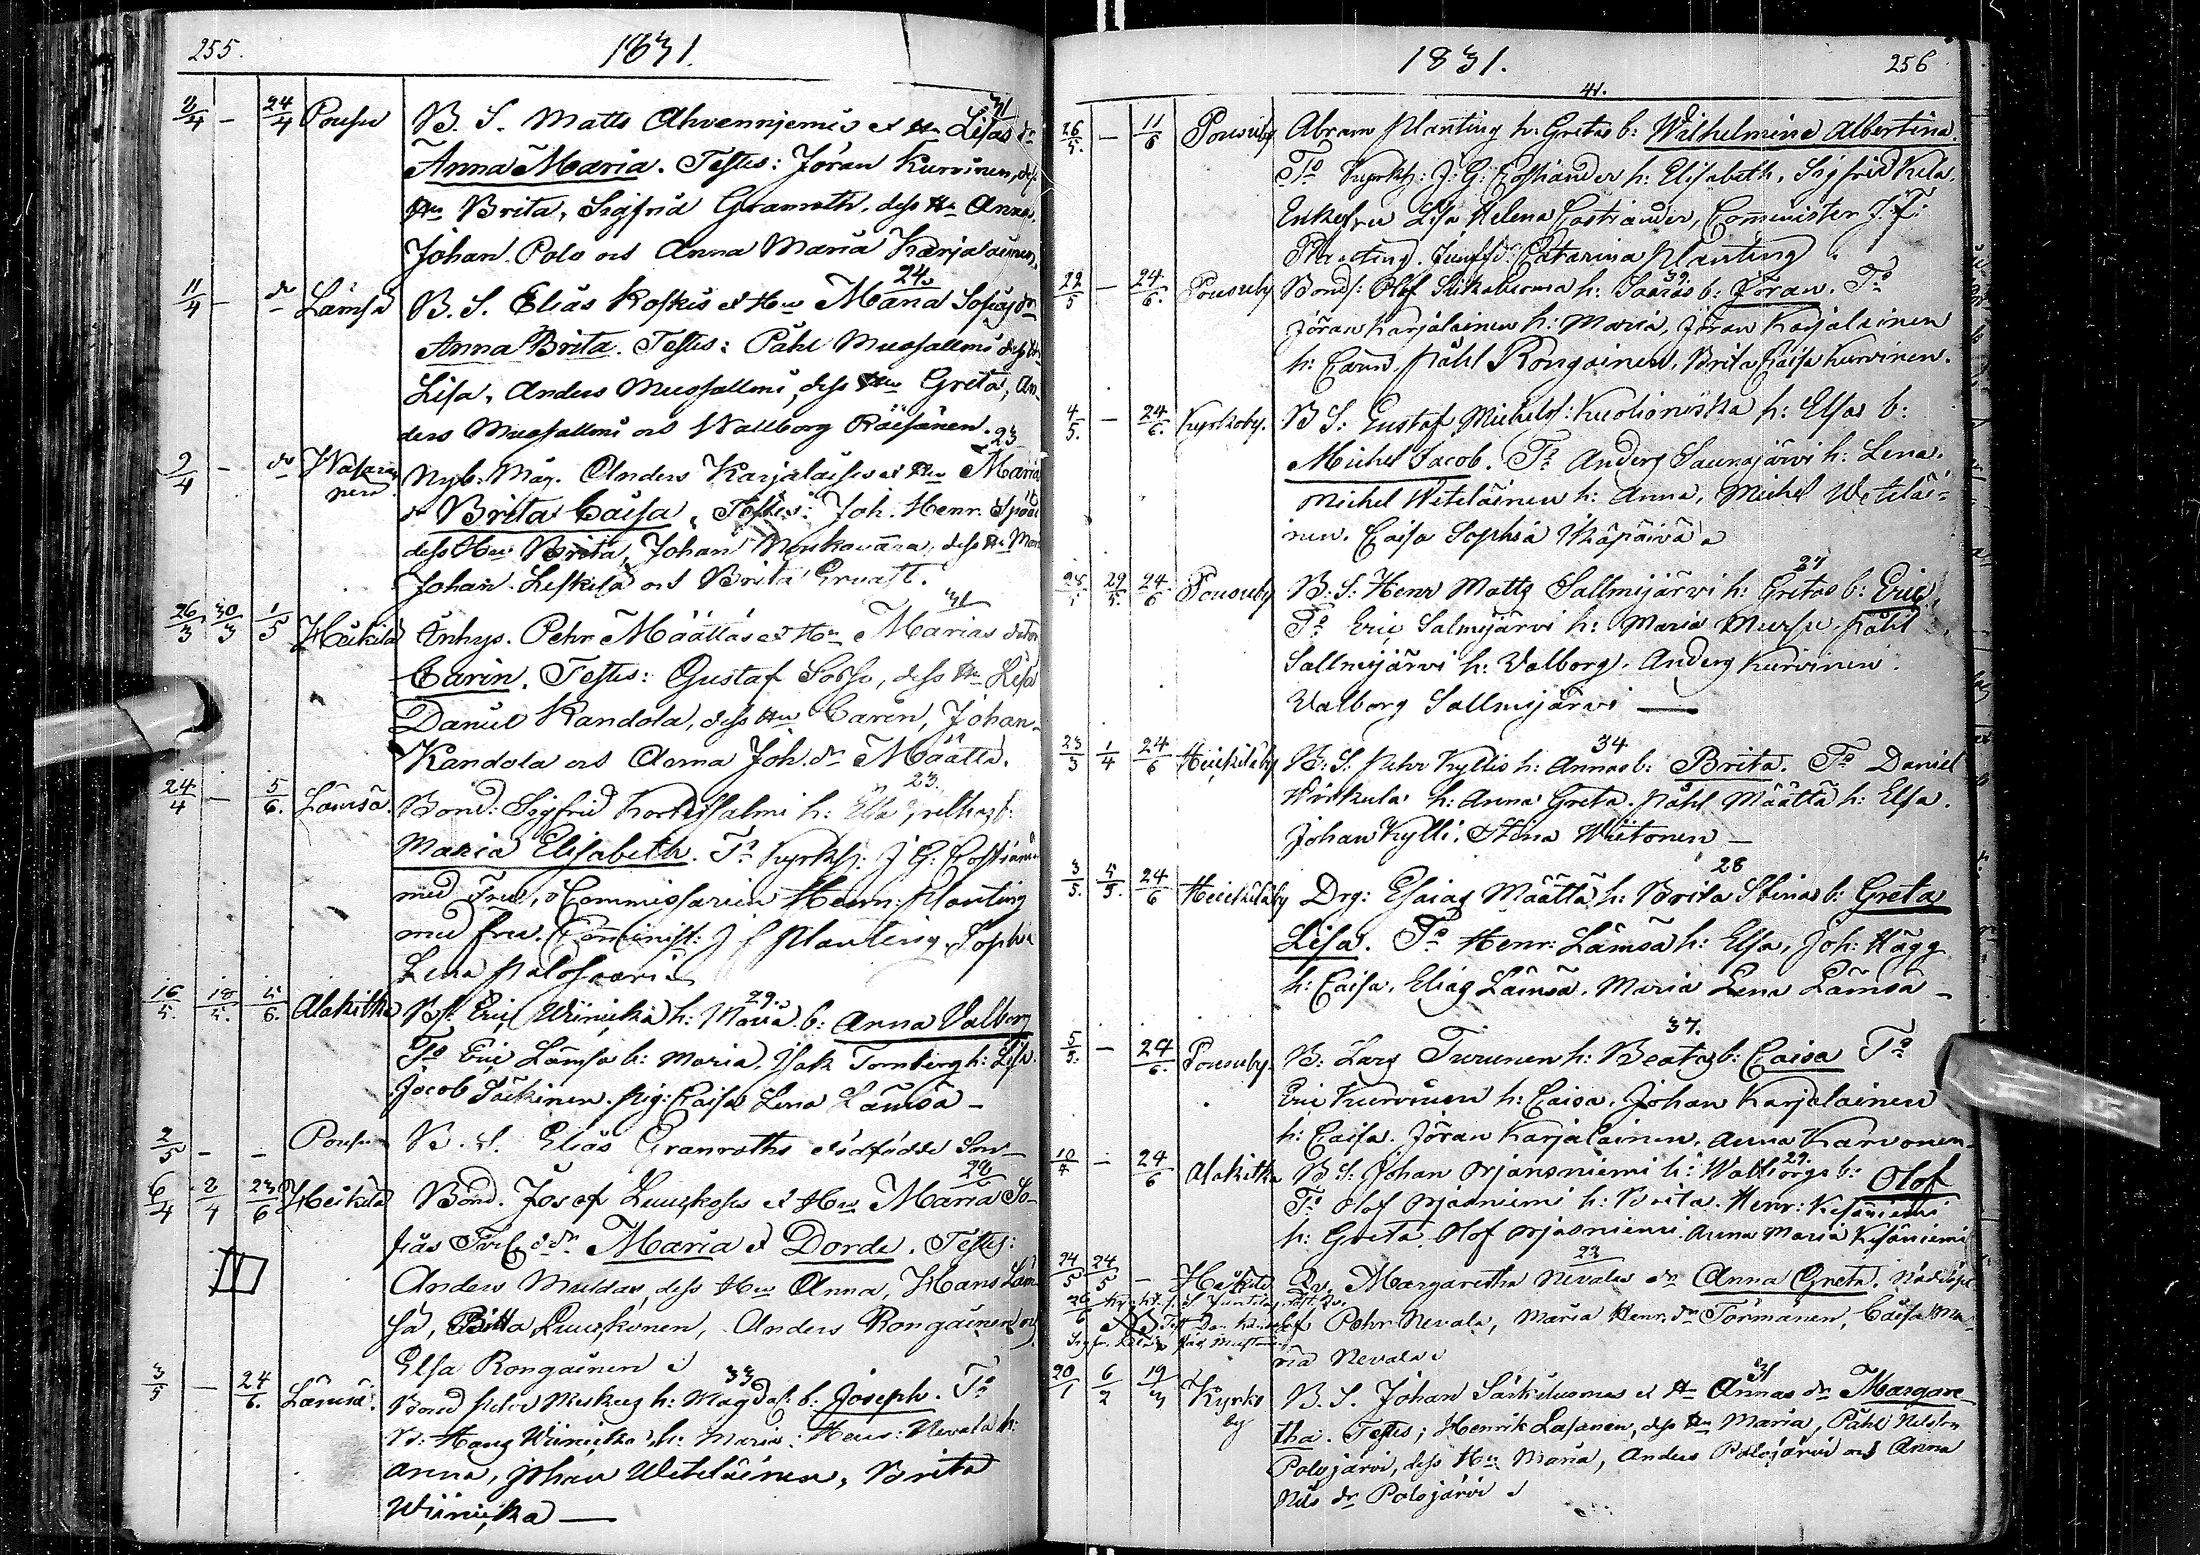 255.
1831.
2/4 — 24/4 Pousu B. S. Matts Ahvennjemis et Hu Lisas dr 31
Anna Maria. Testes: Jöran Kurvinen, dess
Hu Brita, Sigfrid Granroth, dess Hu Anna,
Johan Polo och Anna Maria Karjalainen.
11/4 — do Lämsä B. S. Elias Koskis et Hu Maria Sofias dr 24
Anna Brita. Testes: Påhl Mussallmi dess Hu
Lisa, Anders Mussallmi, dess Hu Greta, An-
ders Mussallmi och Wallborg Räisänen.
9/4 — do Nyb. Måg. Anders Karjalaises et Hu Maria 23
dr Brita Caisa, Testes: Joh. Henr.
dess Hu Brita, Johan dess Hu
Johan Leskelä och Brita Ervast.
26/3 30/3 1/5 Heikilä Enhys. Pehr Määttäs et Hu Marias dotter 31
Carin. Testes: Gustaf dess Hu Lisa
Daniel Kandola, dess Hu Caren, Johan
Kandola och Anna Joh. dr Määttä.
24/4 — 5/6. Lämsä. Bond: Sigfrid Kortessalmi h: 23. b:
Maria Elisabeth. To Kyrkh: J G: Costiander
med Fru, Commissarien Henr: Planting
med fru. Comminist: J F Planting, Sophia
Lena Palosaari
16/5 18/5. 5/6. Alakitka Bs. Eric Wiinicka h: Maria b: Anna Valborg 29.
To Eric Lämsä h: Maria, Isak Tornberg h: Lisa.
Jacob Säkinen. Pig: Caisa Lena Lämsä —
2/5 — — Pousu B. S. Elias Granroths dödfödde Son —
6/4 8/4 23/6 Heikilä Bond. Josef Luuskoses et Hu Maria So- 28
fias Tvil. ddr Maria et Dorde. Testes:
Anders Mulldas, dess Hu Anna, Hans Läm-
sä, Britta Luuskonen, Anders Rongainen och
Elsa Rongainen
3/5 — 24/6. Lämsä. Bond h: Magdal: b: Joseph. To 33
B: Hans Wiinicka h: Maria: Henr: Nevala h:
Anna, Johan Weteläinen, Brita
Wiinicka —
1831.
256
41.
26/5. — 11/6 Pousuby Abram Planting h: Gretas b: Wilhelmina Albertina.
To Kyrkh: J: G: Costiander h: Elisabeth, Sigfrid Kela.
Enkefru Lisa Helena Costiander, Comminister J: F:
Planting. Jungf: Catarina Planting
22/5 — 24/6. Pousuby Bonds: Olof h: Saaras b: Jöran. To 39.
Jöran Karjalainen h: Maria, Jöran Karjalainen
h: Carin, Påhl Rongainen, Brita Caisa Kurvinen.
4/5. — 24/6. Kyrkoby. B S: Gustaf Michels: h: Elsas b:
Michel Jacob. To Anders Saunajärvi h: Lena.
Michel Weteläinen h: Anna, Michel Weteläi=
nen. Caisa Sophia
29/5. 24/6 Pousuby B: S: Henr Matts Sallmijärvi h: Gretas b: Eric 27
To Eric Salmijärvi h: Maria Mursu Påhl
Sallmijärvi h: Valborg, Anders Kurvinen.
Valborg Sallmijärvi —
23/3 1/4 24/6 Heickiläby B: S: Pehr Kyllis h: Annas b: Brita. To Daniel 34
h: Anna Greta. Påhl Määttä h: Elsa.
Johan Kylli. Stina Wiitonen —
3/5. 4/5. 24/6 Heickiläby Drg: Esaias Määttä h: Brita Stinas b: Greta 28
Lisa. To Henr: Lämsä h: Elsa, Joh: Hägg
h: Caisa, Elias Lämsä, Maria Lena Lämsä —
5/5. — 24/6. Pousuby. B: Lars Turunen h: Beatas b: Caisa To 37.
Eric Kurvinen h: Caisa. Johan Karjalainen
h: Caisa. Jöran Karjalainen, Anna Karvonen.
10/4 — 24/6 Alakitka B S: Johan Orjasniemi h: Wallborgs b: Olof 29.
To Olof Orjasniemi h: Brita. Henr: Kesäniemi
h: Greta. Olof Orjasniemi Anna Maria Kesäniemi
24/5 24/5 — Heikilä Qv. Margaretha Nevalas dr Anna Greta. Nöddöpt 23
af Pehr Nevala, Maria Henr. dr Törmänen, Caisa Ma-
ria Nevala
20/1 6/2 19/3 Kyrko B. S. Johan Särkiluomas et Hu Annas dr Margare- 31
by tha. Testes; Henrik Lasanen, dess Hu Maria, Påhl Nilsson
Polojärvi, dess Hu Maria, Anders Polojärvi och Anna
Nils dr Polojärvi